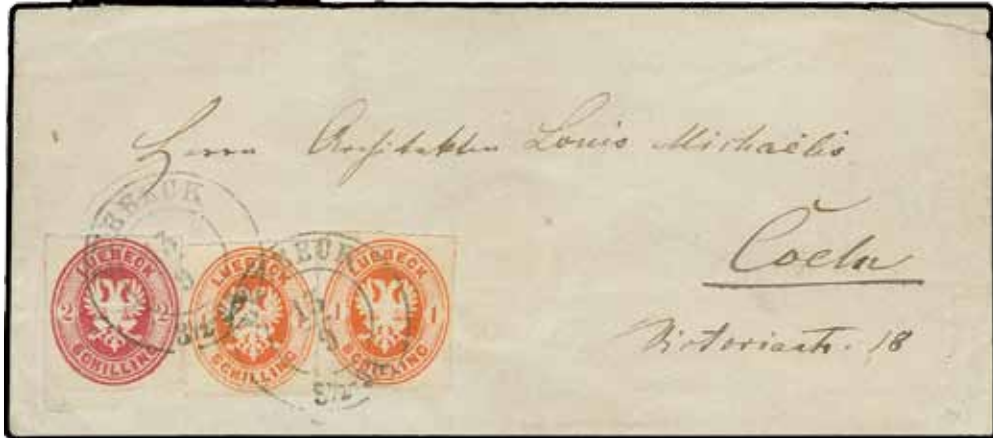 Herrn Architekten Louis Michaëlis
Coeln
Victoriastr. 18
LUEBECK
2 2
SCHILLING
LUEBECK
SCHILLING
LUEBECK
1 1
SCHILLING